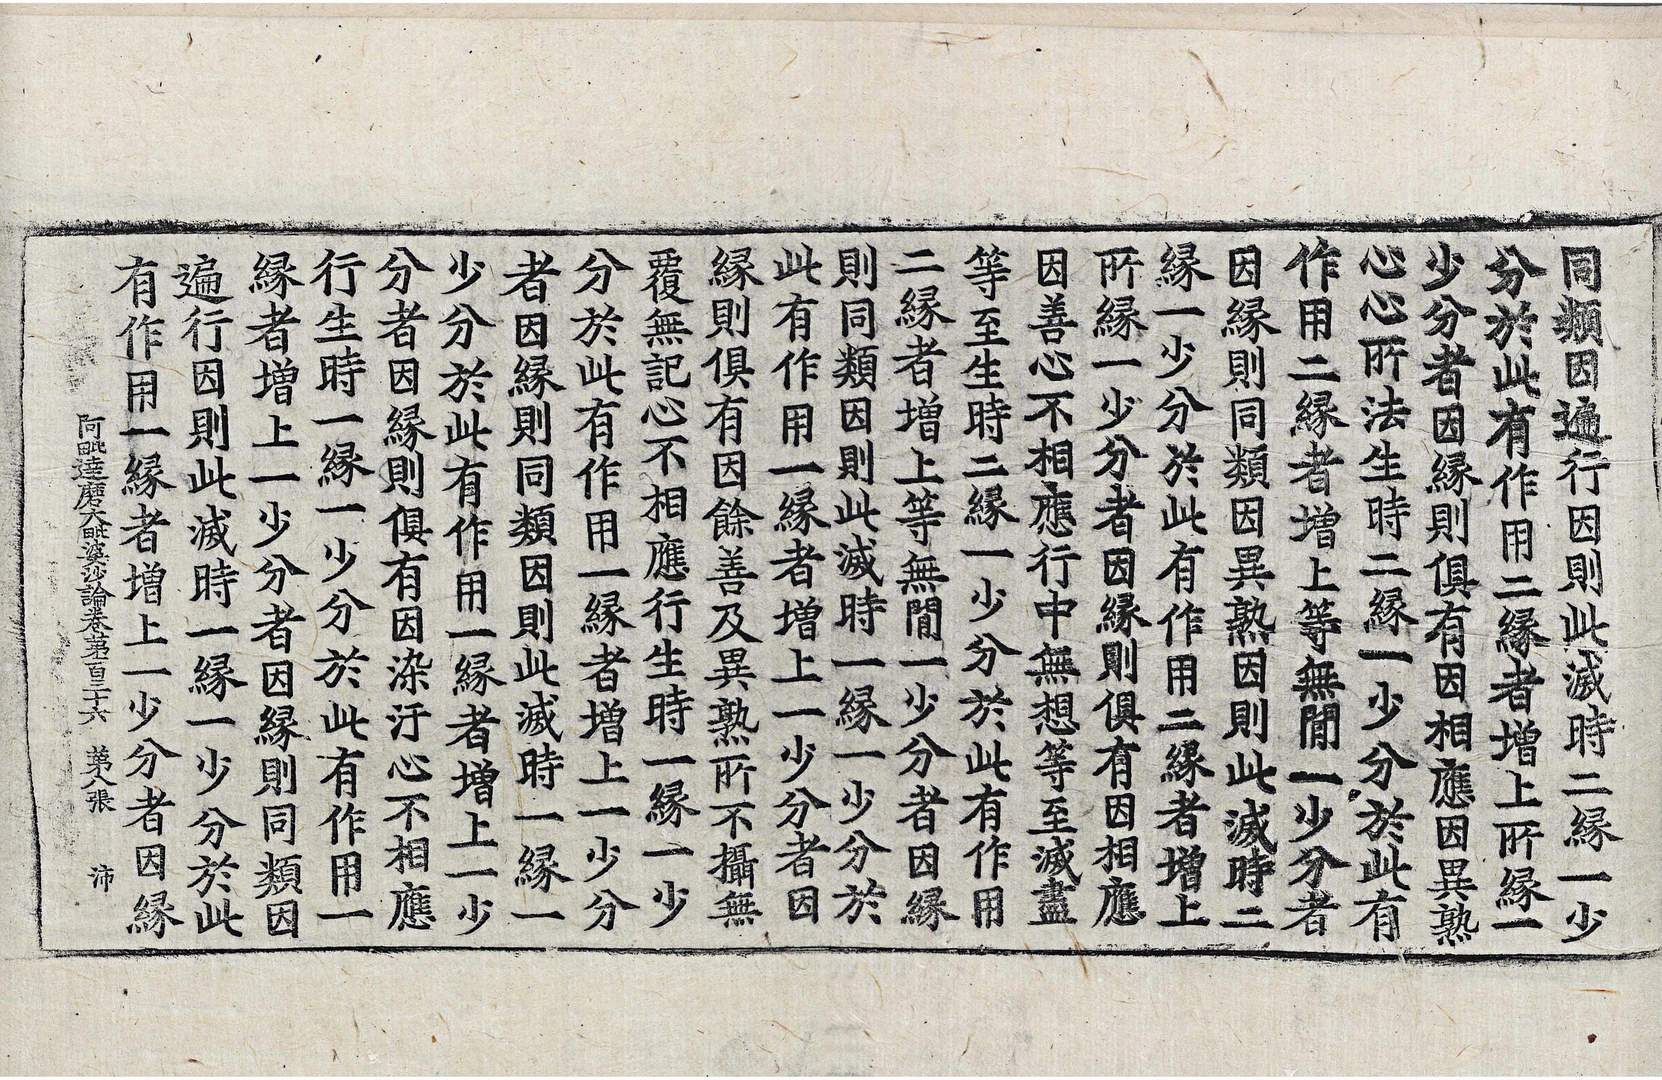 同類因遍行因則此滅時二緣一少
分於此有作用二緣者增上所緣一
少分者因緣則俱有因相應因異熟
心心所法生時二緣一少分於此有
作用二緣者增上等無閒一少分者
因緣則同類因異熟因則此滅時二
緣一少分於此有作用二緣者增上
所緣一少分者因緣則俱有因相應
因善心不相應行中無想等至滅盡
等至生時二緣一少分於此有作用
二緣者增上等無閒一少分者因緣
則同類因則此滅時一緣一少分於
此有作用一緣者增上一少分者因
緣則俱有因餘善及異熟所不攝無
覆無記心不相應行生時一緣一少
分於此有作用一緣者增上一少分
者因緣則同類因則此滅時一緣一
少分於此有作用一緣者增上一少
分者因緣則俱有因染汙心不相應
行生時一緣一少分於此有作用一
緣者增上一少分者因緣則同類因
遍行因則此滅時一緣一少分於此
有作用一緣者增上一少分者因緣
阿毗達磨大毗婆沙論卷第百三十六 第八張 沛